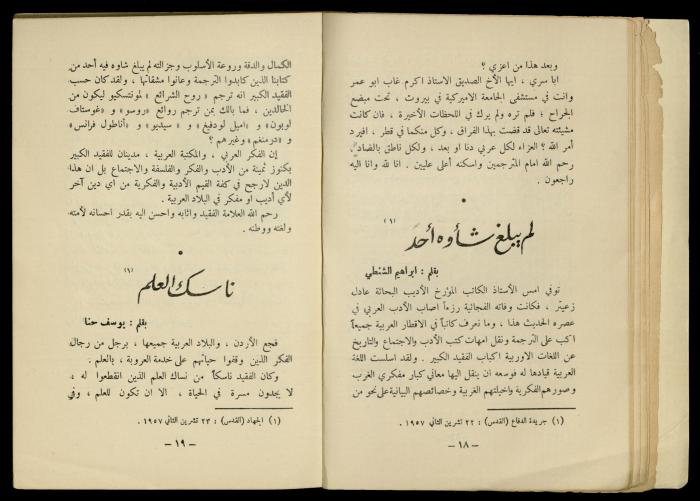 وبعد هذا من اعزي ؟
ابا سري ، ايها الأخ الصديق الاستاذ اكرم غاب ابو عمر
وانت في مستشفى الجامعة الاميركية في بيروت ، تحت مبضع
الجراح ؛ فلم تره ولم يرك في اللحظات الأخيرة ، فان كانت
مشيئته تعالى قد قضت بهذا الفراق ، وكل منكما في قطر ، افيرد
أمر الله ؟ العزاء لكل عربي دنا او بعد ، ولكل ناطق بالضاد
رحم الله امام المترجمين واسكنه أعلى عليين . انا لله وانا اليه
راجعون .
لم يبلغ شأوه أحد (١)
بقلم : ابراهيم الشنطي
توفي امس الأستاذ الكاتب المؤرخ الأديب البحاثة عادل
زعيتر ، فكانت وفاته الفجائية رزءاً اصاب الأدب العربي في
عصره الحديث هذا ، وما نعرف كاتباً في الاقطار العربية جميعاً
اكب على الترجمة ونقل امهات كتب الأدب والاجتماع والتاريخ
عن اللغات الاوربية اكباب الفقيد الكبير . ولقد اسلست اللغة
العربية قيادها له فوسعه ان ينقل اليها معاني كبار مفكري الغرب
وصورهم الفكرية واخيلتهم الغربية وخصائصهم البيانية على نحو من
(١) جريدة الدفاع (القدس) : ٢٢ تشرين الثاني ١٩٥٧ .
— ١٨ —
الكمال والدقة وروعة الأسلوب وجزالته لم يبلغ شاوه فيه أحد من
كتابنا الذين كابدوا الترجمة وعانوا مشقاتها ، ولقد كان حسب
الفقيد الكبير انه ترجم « روح الشرائع » لمونتسكيو ليكون من
الخالدين ، فما بالك بمن ترجم روائع «روسو» و «غوستاف
لوبون » و «اميل لودفيغ » و « سيديو » و «أناطول فرانس»
و «درمنغم» وغيرهم ؟
إن الفكر العربي ، والمكتبة العربية ، مدينان للفقيد الكبير
بكنوز ثمينة من الأدب والفكر والفلسفة والاجتماع بل ان هذا
الدين لارجح في كفة القيم الأدبية والفكرية من اي دين آخر
لأي أديب او مفكر في البلاد العربية .
رحم الله العلامة الفقيد واثابه واحسن اليه بقدر احسانه لأمته
ولغته ووطنه .
ناسك العلم (١)
بقلم : يوسف حنا
فجع الأردن ، والبلاد العربية جميعها ، برجل من رجال
الفكر الذين وقفوا حياتهم على خدمة العروبة ، بالعلم .
وكان الفقيد ناسكاً من نساك العلم الذين انقطعوا له ،
لا يجدون مسرة في الحياة ، الا ان تكون للعلم ، وفي
(١) الجهاد (القدس) : ٢٣ تشرين الثاني ١٩٥٧ .
— ١٩ —